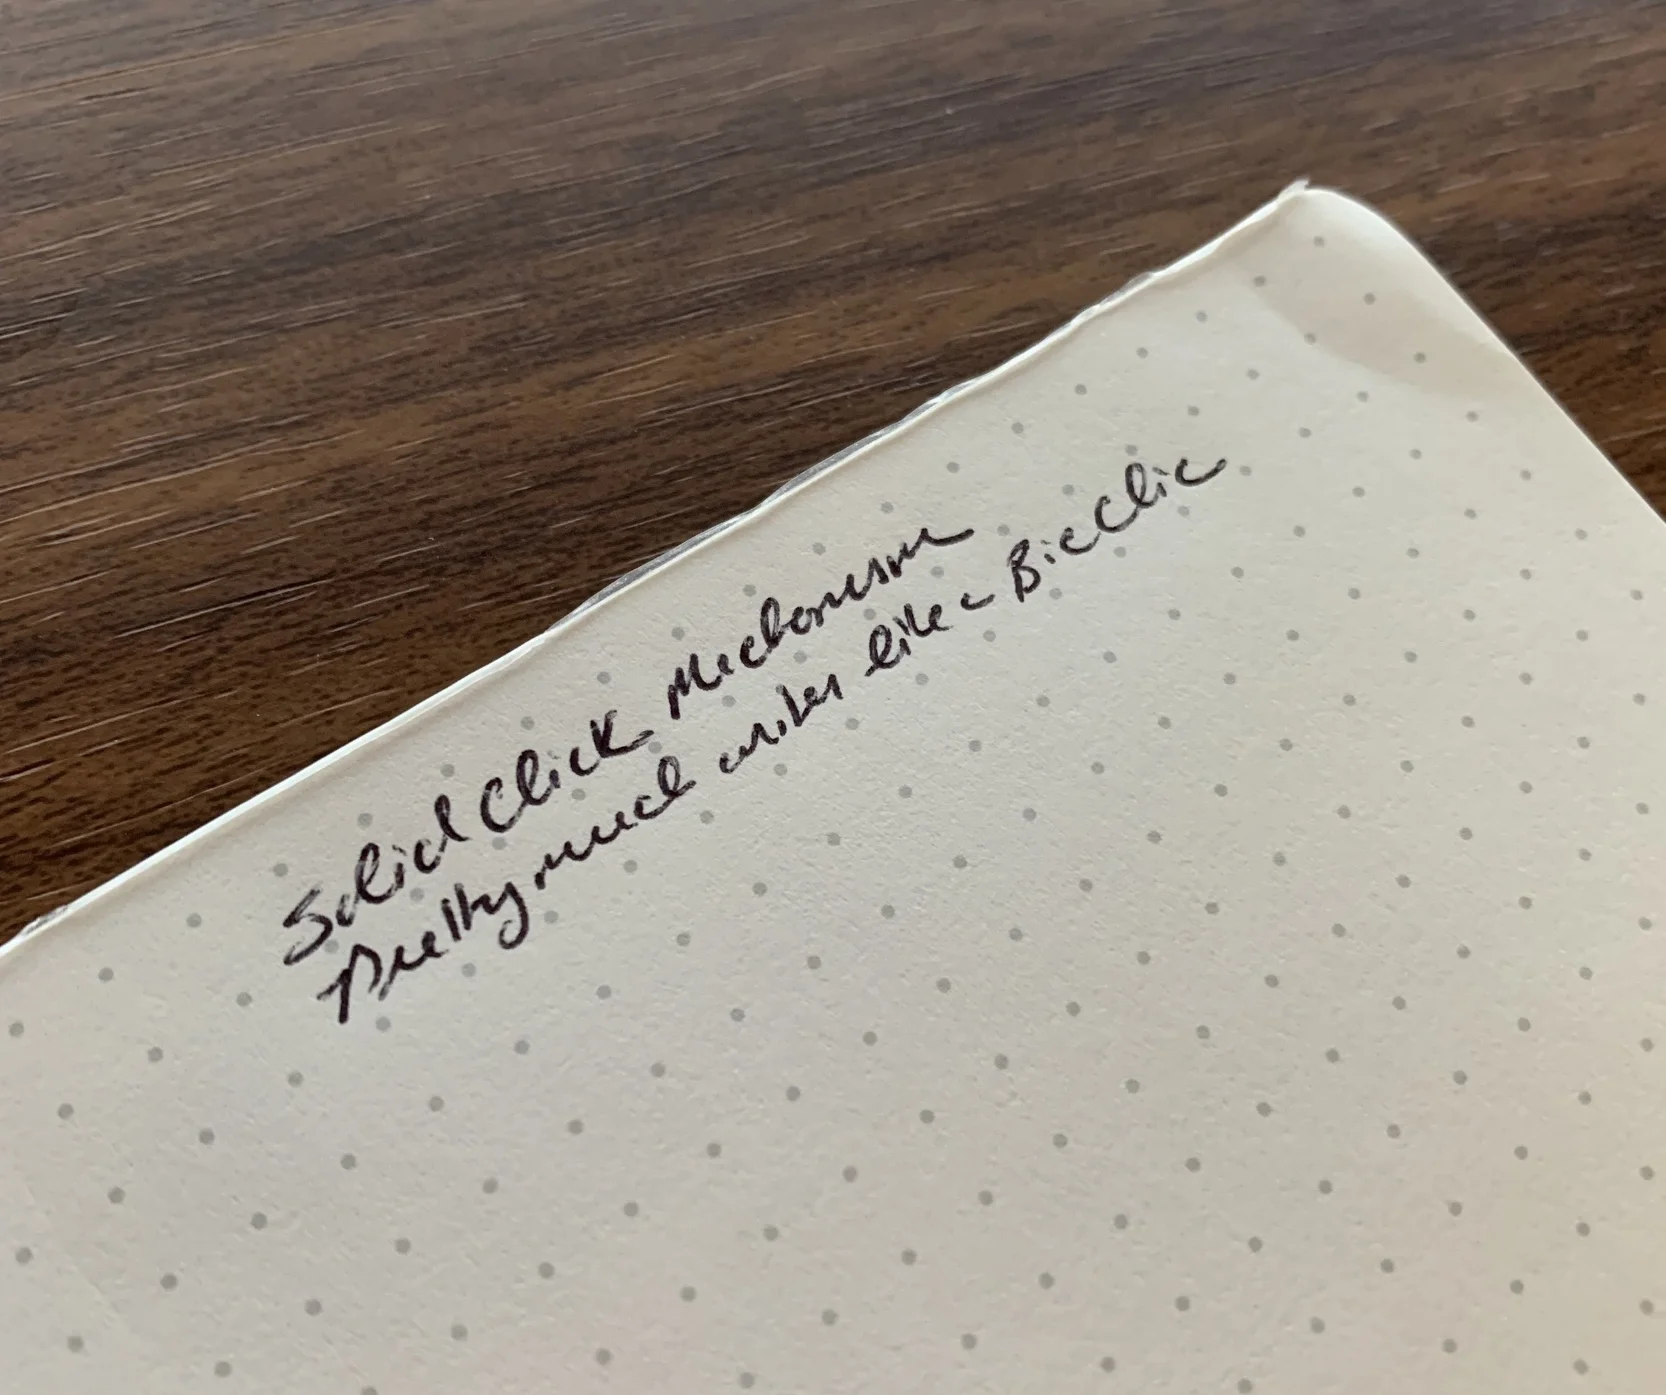 Solid Click Mechanism
Pretty much writes like a Bic Clic